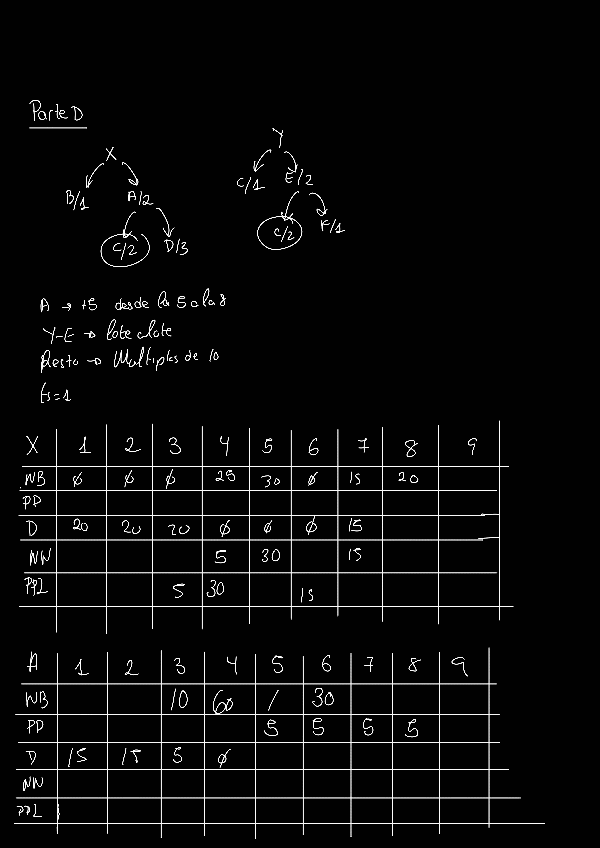 Parte D
X
Y
B/1 A/2
C/1 E/2
C/2 D/3
C/2 F/1
A → +5 desde la 5 a la 8
Y-E → lote a lote
Resto → Multiplos de 10
ts=1
X 1 2 3 4 5 6 7 8 9
NB ø ø ø 25 30 ø 15 20
PP
D 20 20 20 ø ø ø 15
NN 5 30 15
PPL 5 30 15
A 1 2 3 4 5 6 7 8 9
NB 10 60 / 30
PP 5 5 5 5
D 15 15 5 ø
NN
PPL